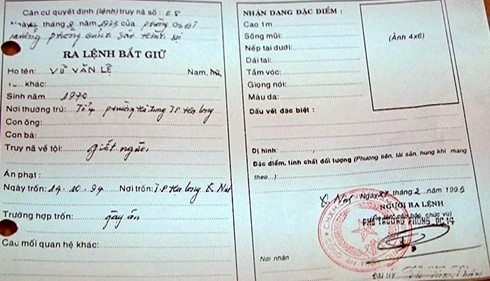 Căn cứ quyết định (lệnh) truy nã số: 08
ngày tháng 2 năm 1995 của phòng
phòng
RA LỆNH BẮT GIỮ
Họ tên: VŨ VĂN LỆ Nam, nữ
khác:
Sinh năm 1970
Nơi thường trú: Tổ 4 phường Hà Trung TP Hạ Long
Con ông:
Con bà:
Truy nã về tội: giết người
Án phạt:
Ngày trốn: 14-10-94 Nơi trốn: TP Hạ Long Q. Ninh
Trường hợp trốn: gây án
Các mối quan hệ khác:
NHÂN DẠNG ĐẶC ĐIỂM:
Cao 1m
Sống mũi:
Nếp tai dưới:
Dái tai:
Tầm vóc:
Giọng nói:
Màu da:
Dấu vết đặc biệt:
(Ảnh 4x6)
Dị hình:
Đặc điểm, tính chất đối tượng (Phương tiện, tài sản, hung khí mang
theo...)
Q. Ninh Ngày 27 tháng 2 năm 1995
NGƯỜI RA LỆNH
PHÓ TRƯỞNG PHÒNG PC14
Nơi nhận